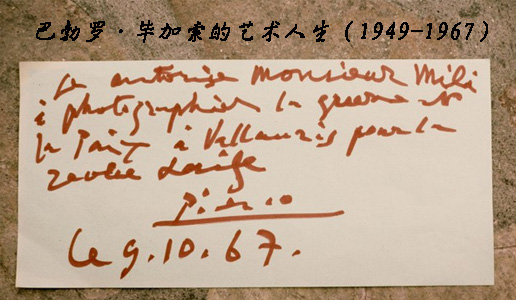 巴勃罗·毕加索的艺术人生 (1949-1967)
Je autorise Monsieur Mili
à photographier la guerre et
la Paix à Vallauris pour la
revue Life
Picasso
le 9.10.67.